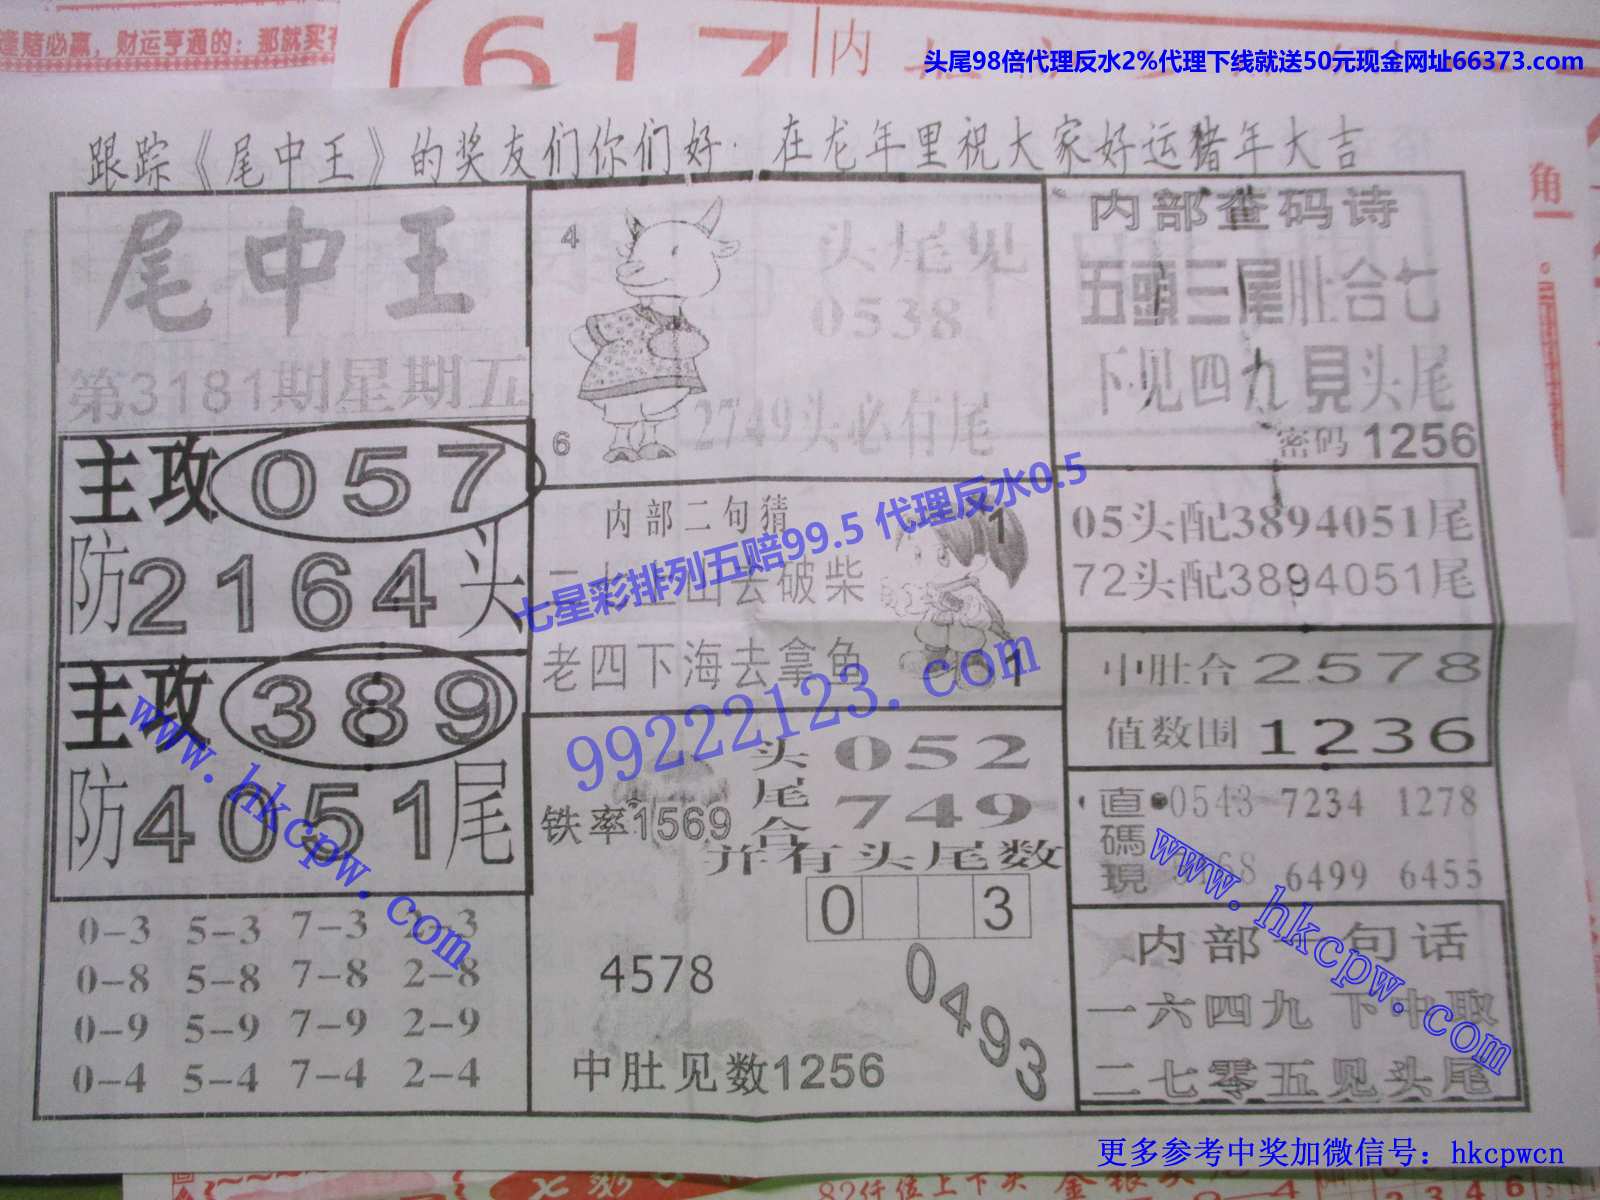 逢赌必赢，财运亨通的：那就买
617
内
头尾98倍代理反水2%代理下线就送50元现金网址66373.com
跟踪《尾中王》的奖友们你们好．在龙年里祝大家好运猪年大吉
角
尾中王
第3181期星期五
主攻 057
防2164头
主攻 389
防4051尾
0-3 5-3 7-3 2-3
0-8 5-8 7-8 2-8
0-9 5-9 7-9 2-9
0-4 5-4 7-4 2-4
4
6
头尾见
0538
2749头必有尾
内部二句猜
上山去破柴
老四下海去拿鱼
1
1
七星彩排列五赔99.5 代理反水0.5
99222123.com
铁率1569
头尾合
052
749
并有头尾数
0 3
4578
0493
中肚见数1256
内部查码诗
五頭三尾肚合七
下见四九見头尾
密码 1256
05头配3894051尾
72头配3894051尾
中肚合2578
值数围1236
直碼現
0543 7234 1278
6499 6455
内部 句话
一六四九 下中取
二七零五见头尾
www.hkcpw.com
www.hkcpw.com
更多参考中奖加微信号：hkcpwcn
82仟位上下头